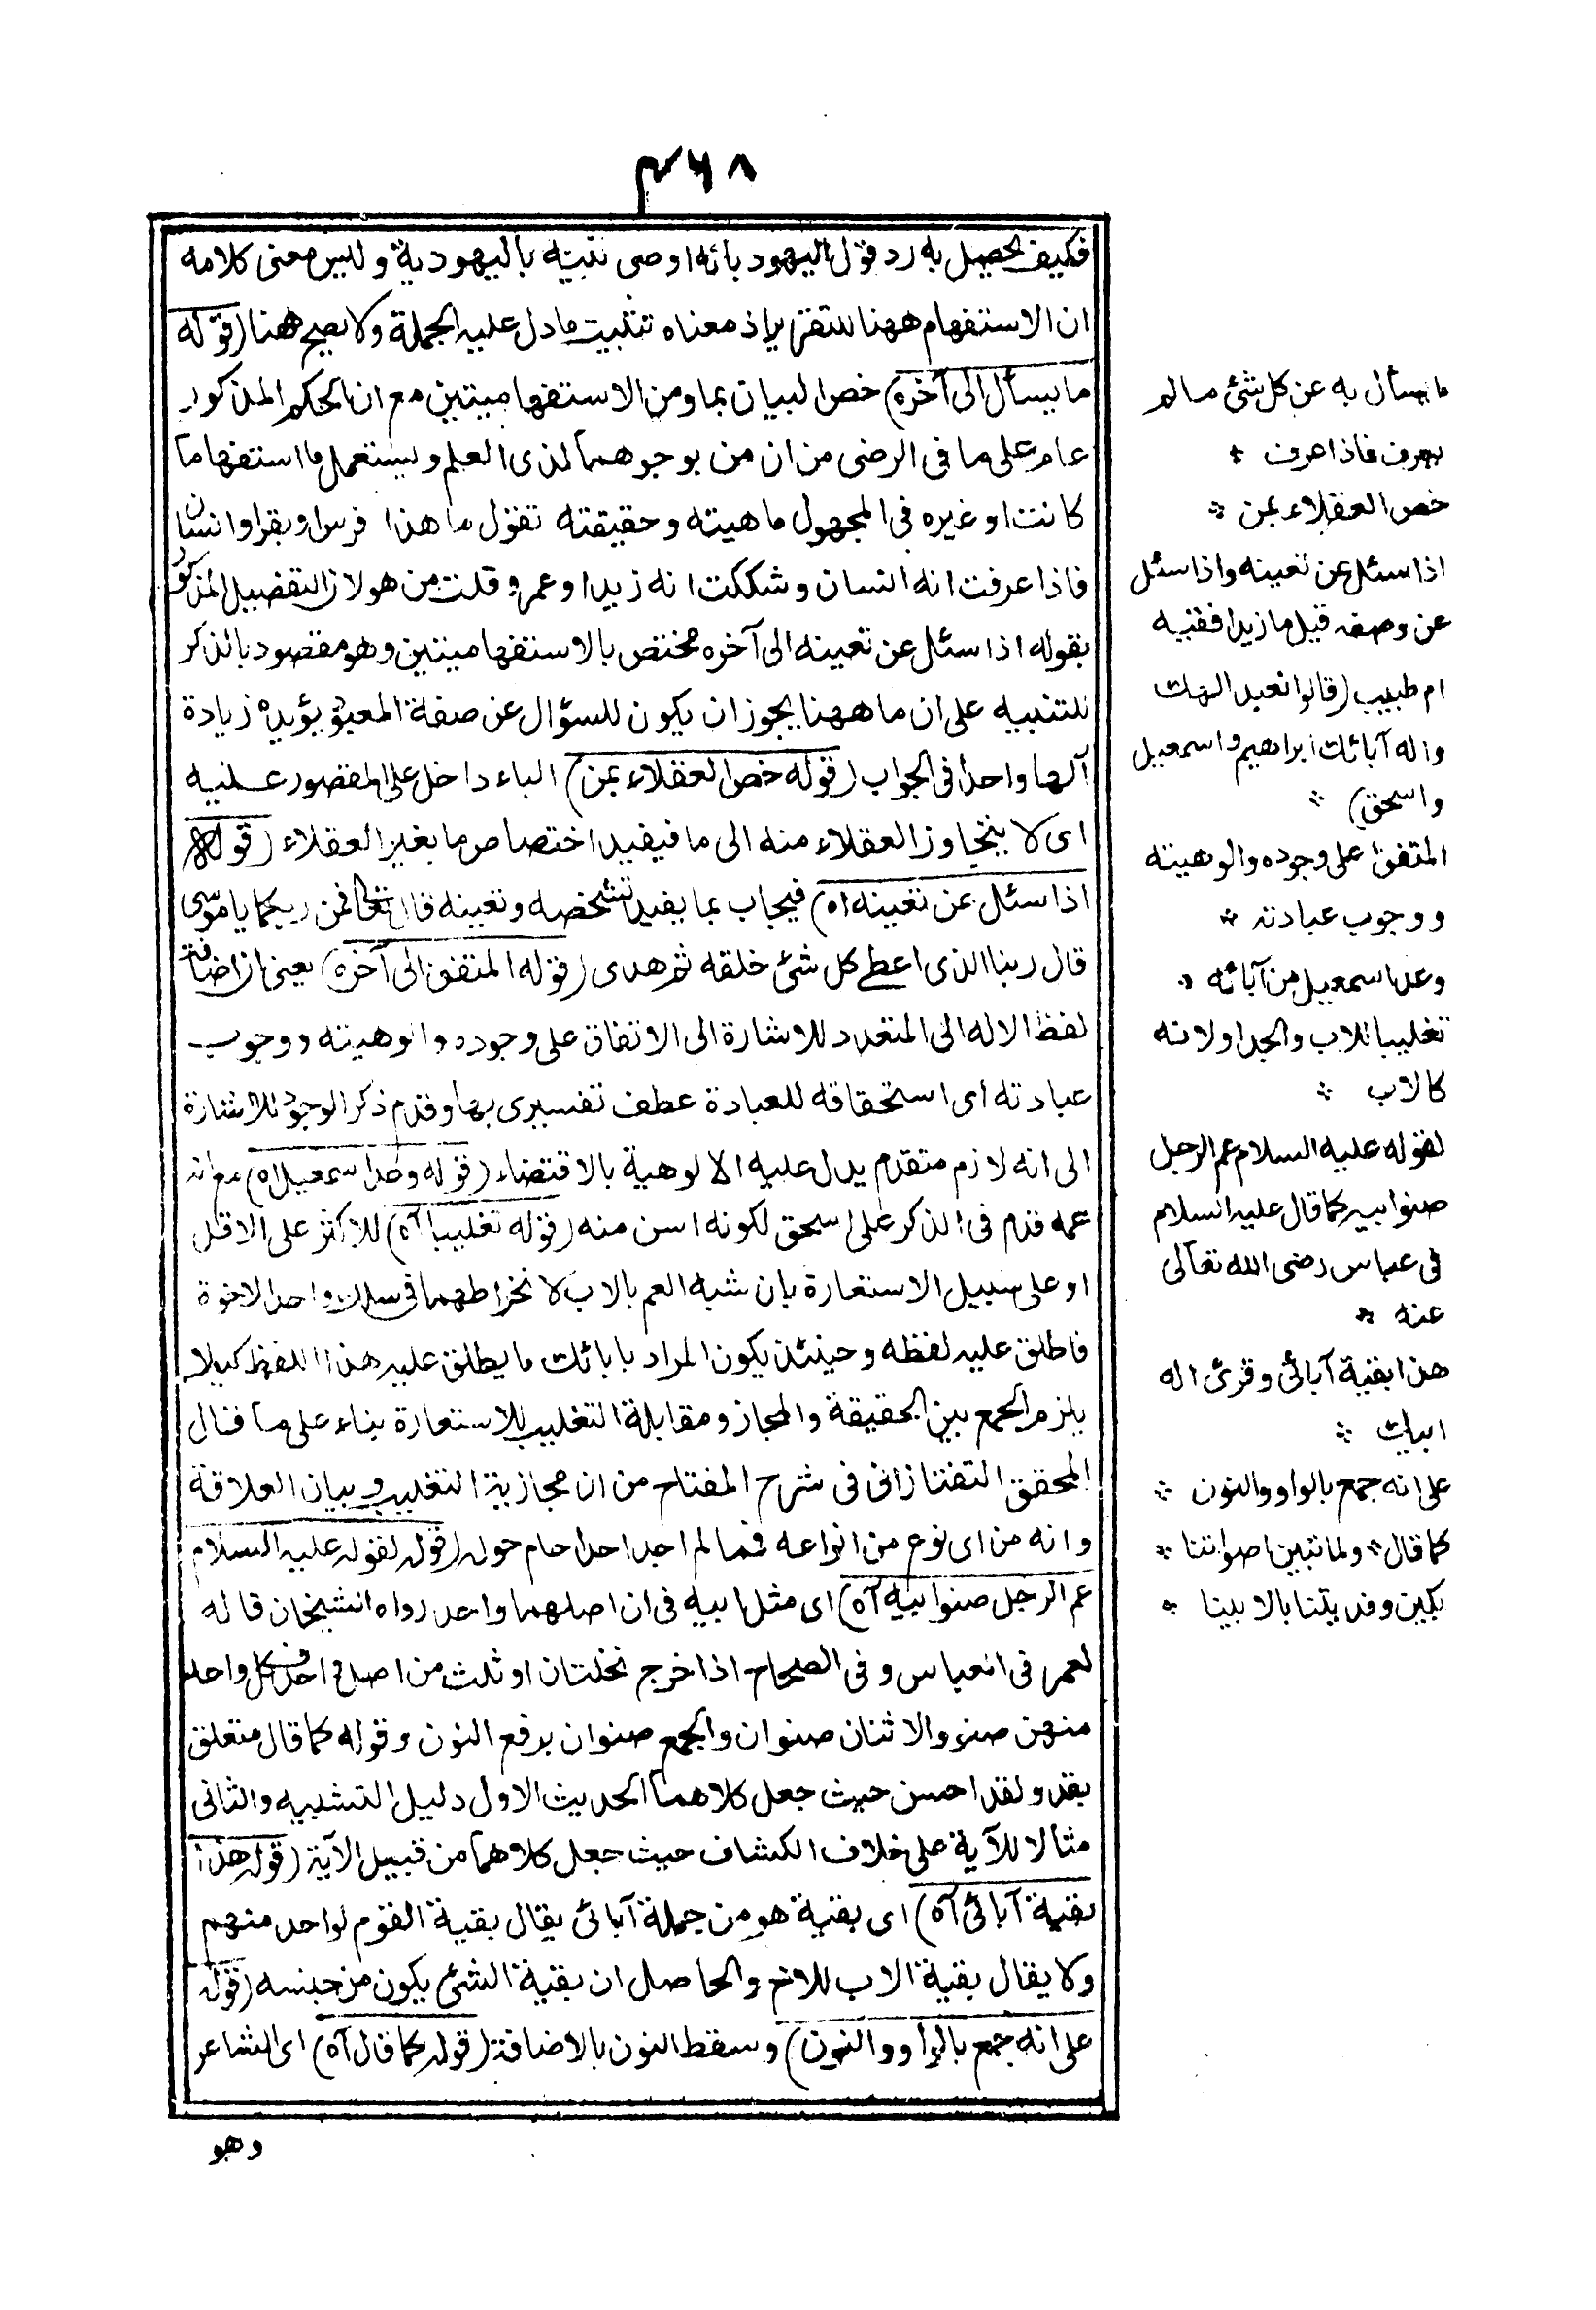 ٤٦٨
فكيف يحصل به رد قول اليهود بانه اوصى بنيه باليهودية وليس معنى كلامه
ان الاستفهام ههنا للتقرير اذ معناه تثبيت ما دل عليه الجملة ولا يصح ههنا (قوله
ما يسأل الى آخره) خص البيان بما ومن الاستفهاميتين مع ان الحكم المذكور
عام على ما فى الرضى من ان من بوجوهها لذى العلم ويستعمل ما استفهاما
كانت او غيره فى المجهول ماهيته وحقيقته تقول ما هذا فرس او بقر او انسان
فاذا عرفت انه انسان وشككت انه زيد او عمرو قلت من هو لان التفصيل المذكور
بقوله اذا سئل عن تعينه الى آخره مختص بالاستفهاميتين وهو مقصود بالذكر
للتنبيه على ان ما ههنا يجوز ان يكون للسؤال عن صفة المعبود يؤيده زيادة
آلها واحدا فى الجواب (قوله خص العقلاء بمن) الباء داخل على المقصور عليه
اى لا يتجاوز العقلاء منه الى ما فيفيد اختصاص ما بغير العقلاء (قوله
اذا سئل عن تعينه اه) فيجاب بما يفيد تشخصه وتعينه قال تعالى فمن ربكما يا موسى
قال ربنا الذى اعطى كل شئ خلقه ثم هدى (قوله المتفق الى آخره) يعنى ان اضافة
لفظ الاله الى المتعدد للاشارة الى الاتفاق على وجوده والوهيته ووجوب
عبادته اى استحقاقه للعبادة عطف تفسيرى بها وقدم ذكر الوجود للاشارة
الى انه لازم متقدم يدل عليه الالوهية بالاقتضاء (قوله وعد اسمعيل اه) مع انه
عمه قدم فى الذكر على اسحق لكونه اسن منه (قوله تغليبا آه) للاكثر على الاقل
او على سبيل الاستعارة بان شبه العم بالاب لانخراطهما فى سلك واحد الاخوة
فاطلق عليه لفظه وحينئذ يكون المراد بابائك ما يطلق عليه هذا اللفظ كيلا
يلزم الجمع بين الحقيقة والمجاز ومقابلة التغليب للاستعارة بناء على ما قال
المحقق التفتازانى فى شرح المفتاح من ان مجازية التغليب وبيان العلاقة
وانه من اى نوع من انواعه فمما لم اجد احدا حام حوله (قوله لقوله عليه السلام
عم الرجل صنو ابيه آه) اى مثل ابيه فى ان اصلهما واحد رواه الشيخان قاله
لعمر فى العباس وفى الصحاح اذا خرج نخلتان او ثلث من اصل واحد فكل واحد
منهن صنو والاثنان صنوان والجمع صنوان برفع النون وقوله كما قال متعلق
بقد ولقد احسن حيث جعل كلاهما الحديث الاول دليل التشبيه والثانى
مثالا للآية على خلاف الكشاف حيث جعل كلاهما من قبيل الآية (قوله هذا
بقية آبائى آه) اى بقية هو من جملة آبائى يقال بقية القوم لواحد منهم
ولا يقال بقية الاب للاخ والحاصل ان بقية الشئ يكون من جنسه (قوله
على انه جمع بالواو والنون) وسقط النون بالاضافة (قوله كما قال آه) اى الشاعر
وهو
ما يسأل به عن كل شئ ما لم
يعرف فاذا عرف *
خص العقلاء بمن *
اذا سئل عن تعينه واذا سئل
عن وصفه قيل ما زيد افقيه
ام طبيب (قالوا نعبد الهك
واله آبائك ابراهيم واسمعيل
واسحق) *
المتفق على وجوده والوهيته
ووجوب عبادته *
وعد اسمعيل من آبائه *
تغليبا للاب والجد او لانه
كالاب *
لقوله عليه السلام عم الرجل
صنو ابيه كما قال عليه السلام
فى عباس رضى الله تعالى
عنه *
هذا بقية آبائى وقرئ اله
ابيك *
على انه جمع بالواو والنون *
كما قال * ولما تبين اصواتنا *
بكين وفديننا بالابينا *